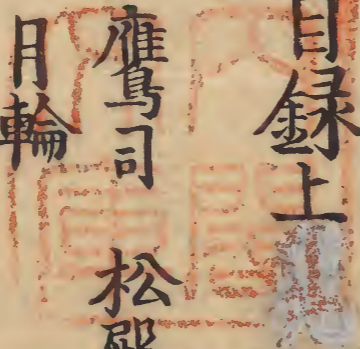 目録上
鷹司 松殿
月輪